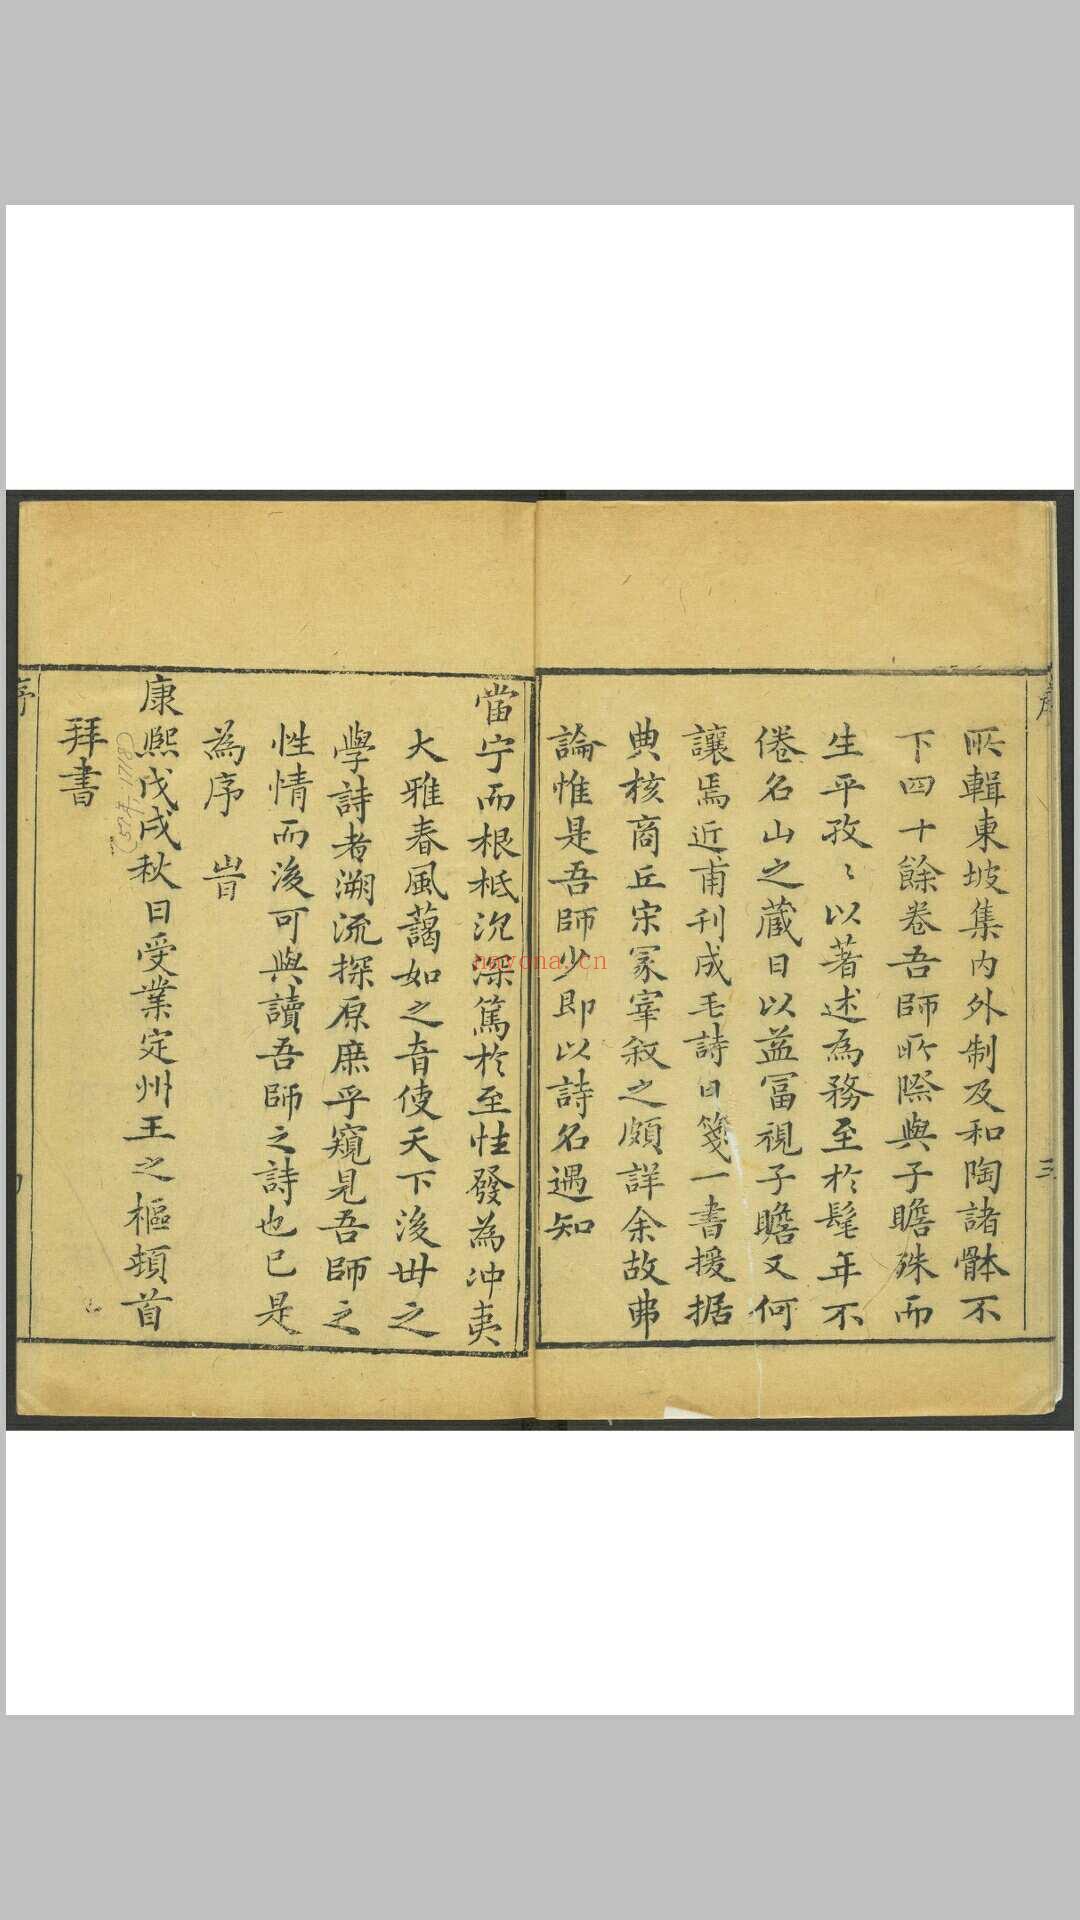 所輯東坡集內外制及和陶諸體不
下四十餘卷吾師所際與子瞻殊而
生平孜〻以著述為務至於髦年不
倦名山之蔵日以益冨視子瞻又何
讓焉近甫刊成毛詩日箋一書援据
典核商丘宋冢宰叙之頗詳余故弗
論惟是吾師少即以詩名遇知
當宁而根柢沉深篤於至性發為冲夷
大雅春風藹如之音使天下後世之
學詩者溯流探原庶乎窺見吾師之
性情而後可與讀吾師之詩也已是
為序 旹
康熙戊戌秋日受業定州王之樞頓首
拜書
序
三
序
(57卒-1718)
nayona.cn